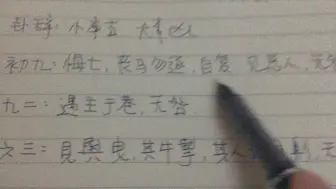 卦辞：小事吉 大事凶
初九：悔亡，丧马勿逐，自复，见恶人，无
九二：遇主于巷，无咎
六三：見輿曳，其牛掣，其人